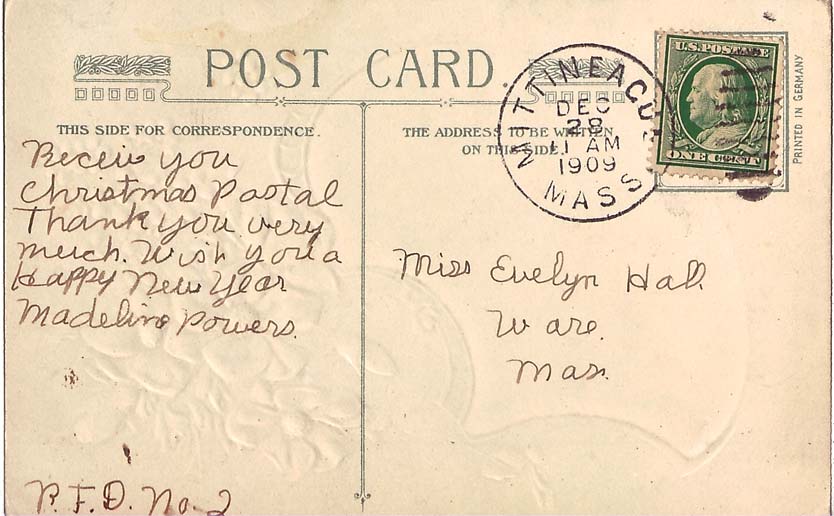 POST CARD
THIS SIDE FOR CORRESPONDENCE.
THE ADDRESS TO BE WRITTEN
ON THIS SIDE.
MITTINEAGUE
DEC
28
11 AM
1909
MASS
U.S. POSTAGE
ONE CENT
PRINTED IN GERMANY
Receiv you
Christmas Postal
Thank you very
much. Wish you a
Happy New Year
Madeline Powers.
R.F.D. No. 2
Miss Evelyn Hall
Ware.
Mass.